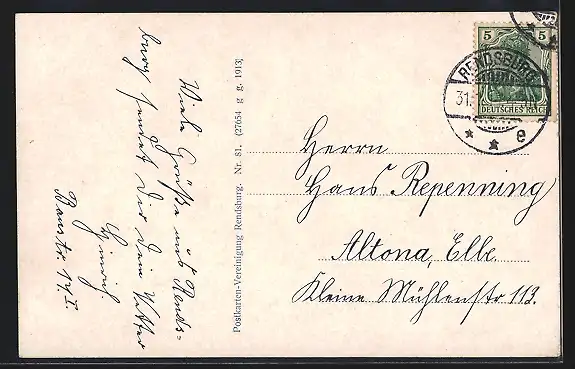 Viele Grüße aus Rends-
burg sendet Dir Dein Vetter
Heinrich.
Baustr. 17 I.
Postkarten-Vereinigung Rendsburg. Nr. 81. (27654 g g. 1913)
5 5
DEUTSCHES REICH
RENDSBURG
31.
* * e
Herrn
Hans Repenning
Altona, Elbe
Kleine Mühlenstr 113.